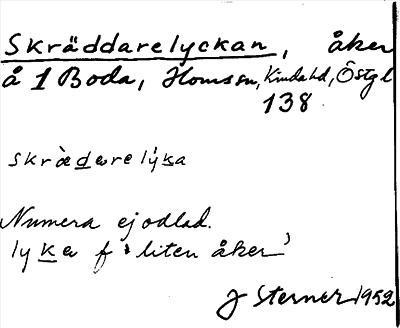 Skräddarelyckan, åker
å 1 Boda, Horns sn, Kinda hd, Östgl
138
skrædarelyka
Numera ej odlad.
lyka f 'liten åker'
J Sterner 1952